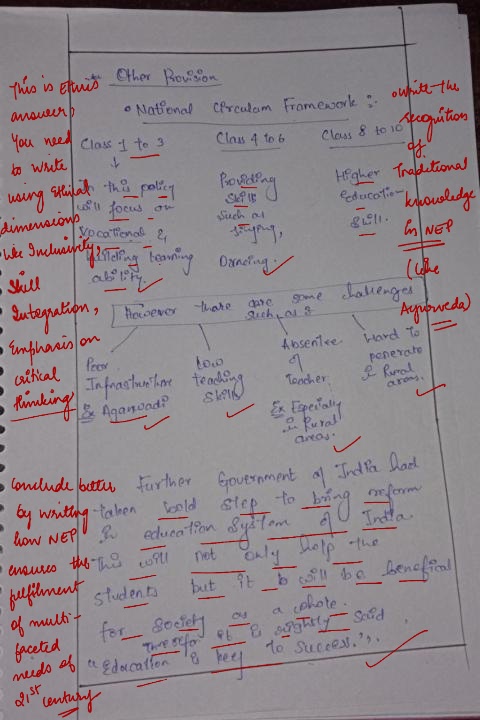 Other Provision
• National Circulam Framework :-
Class 1 to 3
Class 4 to 6
Class 8 to 10
In this policy
will focus on
Vocational &
building learning
ability.
Providing
skills
such as
singing,
Dancing.
Higher
education
Skill.
However there are some challenges
such as :
Poor
Infrastructure
Ex Aganwadi
Low
teaching
Skills
Absentee
of
Teacher.
Ex Especially
in Rural
areas.
Hard to
penerate
in Rural
areas.
Further Government of India had
taken bold step to bring reform
in education system of India
This will not only help the
students but it will be benefical
for society as a whole.
Therefor it is rightly said
"Education is key to success.".
This is Ethics
answer,
You need
to write
using Ethical
dimensions
like Inclusivity,
Skill
Integration,
Emphasis on
critical
thinking
Write the
recognition
of
Traditional
knowledge
in NEP
(like
Ayurveda)
Conclude better
by writing
how NEP
ensures the
fulfilment
of multi-
faceted
needs of
21st century